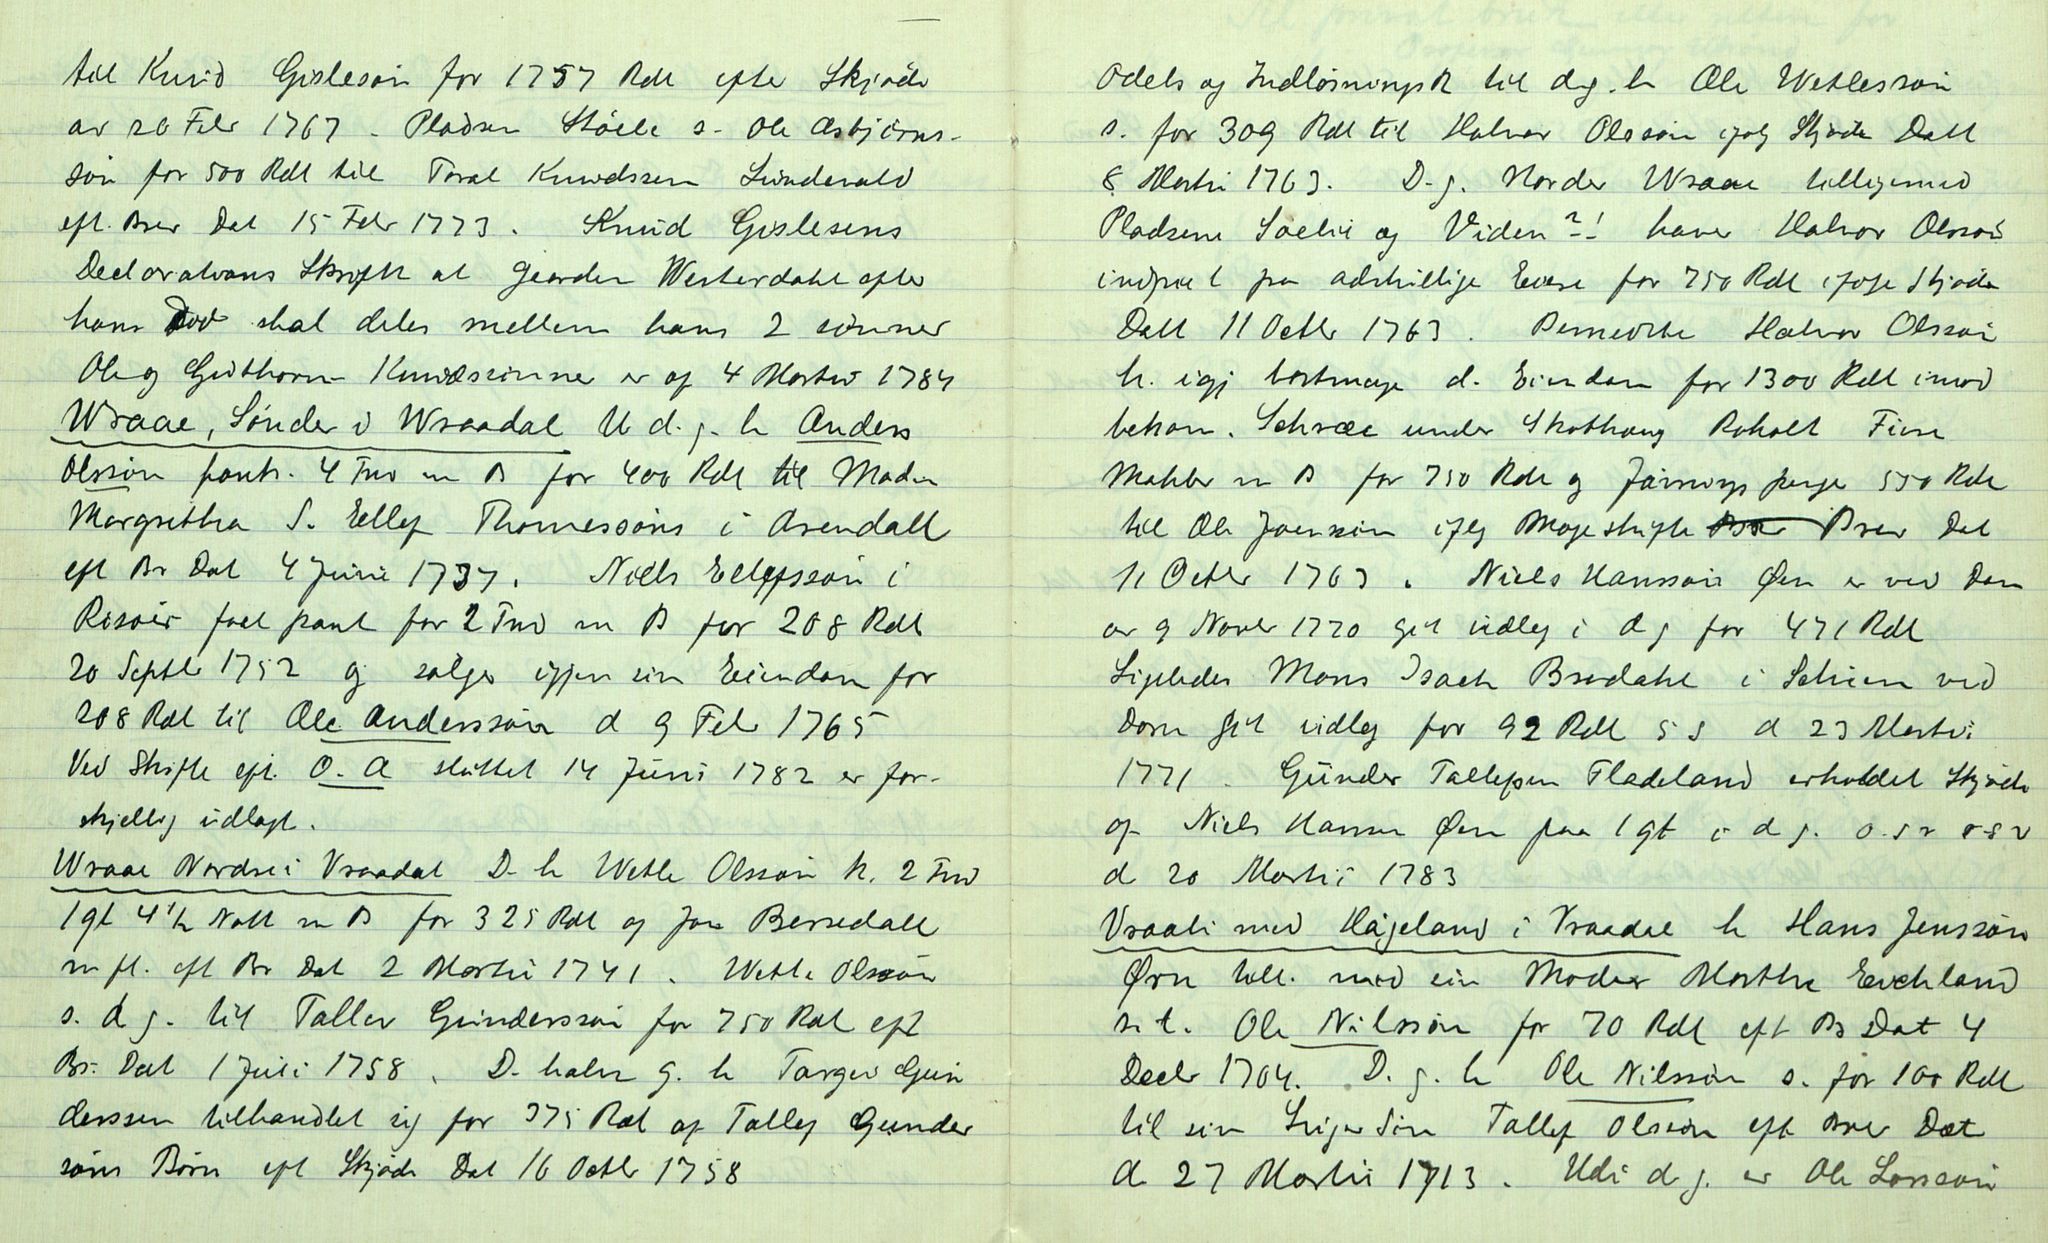 til Knud Gisleson for 1757 Rdl efter Skjöde
av 20 Febr 1767 - Pladsen Stöele s- Ole Asbjörns-
søn for 500 Rdl til Taral Knudssen Lundevald
eft. Brev Dat 15 Febr 1773. Knud Gislesens
Declarations Skrift at Gaarden Westerdahl efter
hans Död skal deles mellem hans 2 sönner
Ole og Guthorm Knudssönner er af 4 Martii 1784
Wraae, Sönder i Wraadal U d. g. h Anders
Olssön pants. 4 Tnd m B for 400 Rdl til Madm
Margrethe S. Ellef Thomessöns i Arendall
eft Br Dat 4 Junii 1737. Niels Ellefssön i
Risöer faet pant for 2 Tnd m B for 208 Rdl
20 Septbr 1752 og sælger igjen sin Eiendom for
208 Rdl til Ole Anderssön d 9 Febr 1765
Ved Skifte eft. O. A sluttet 14 Juni 1782 er for-
skjellig udlagt.
Wraae Nordre i Vraadal D. h Wetle Olssön h. 2 Tnd
1 gt 4½ Natt m B for 325 Rdl og Jon Bersedall
m fl. eft Br Dat 2 Martii 1741. Wetle Olssön
s. d g. til Tallev Gunderssön for 750 Rdl eft
Br. Dat 1 Juli 1758. D. halve g. h Targer Gun
derssen tilhandlet sig for 375 Rdl af Tallef Gunder
söns Börn eft Skjöde Dat 16 Octbr 1758
Odels og Indlösningsr til d.g. h Ole Wetlessön
s. for 309 Rdl til Halvor Olssön ifølg Skjöde Datt
8 Martii 1763. D. g. Norder Wraae tilligemed
Pladsene Soelie og Viden?! haver Halvor Olssön
indfriet fra adskillige Eiere for 750 Rdl ifølge Skjöde
Datt 11 Octbr 1763. Bemeldte Halvor Olssön
h. igj bortmage d. Eiendom for 1300 Rdl imod
bekom. Schree under Skathaug Raholt Fiere
Mahler m B for 750 Rdl og Jævnings penge 550 Rdl
til Ole Joenssön iflg Mageskifte Brev Dat
11 Octbr 1763. Niels Hanssön Øen er ved Dom
av 9 Novbr 1770 git udleg i d g for 471 Rdl
Ligeledes Mons Isach Bredahl i Schien ved
Dom git udleg for 92 Rdl 5 s d 23 Martii
1771. Gunder Tallefsen Fladeland erholdet Skjöde
af Niels Hansen Øen paa 1 gt i d g. o. s v o s v
d 20 Martii 1783
Vraali med Hageland i Vraadal h Hans Jenssön
Ørn till. med sin Moder Marthe Eveland
s. t. Ole Nilssön for 70 Rdl eft Br Dat 4
Decbr 1704. D. g. h Ole Nilssön s. for 100 Rdl
til sin Sviger Sön Tallef Olssön eft Brev Dat
d 27 Martii 1713. Udi d g. er Ole Larssön